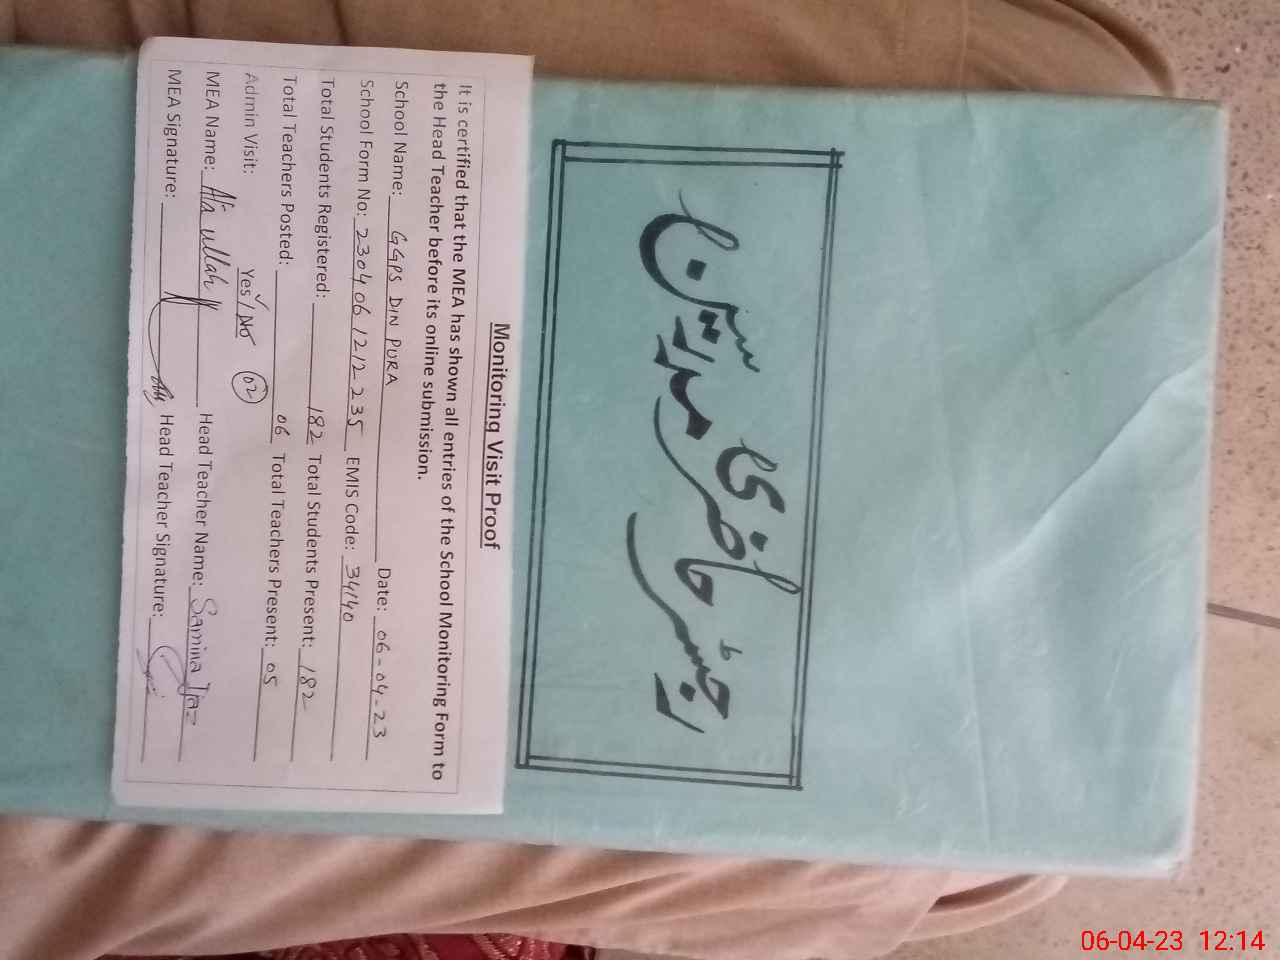 Monitoring Visit Proof
It is certified that the MEA has shown all entries of the School Monitoring Form to
the Head Teacher before its online submission.
School Name: GGPS DIN PURA Date: 06-04-23
School Form No: 2304061212235 EMIS Code: 34140
Total Students Registered: 182 Total Students Present: 182
Total Teachers Posted: 06 Total Teachers Present: 05
Admin Visit: Yes/No 02
MEA Name: Ata ullah Head Teacher Name: Samina Ijaz
MEA Signature: Head Teacher Signature:
رجسٹر حاضری مدرسین
06-04-23 12:14